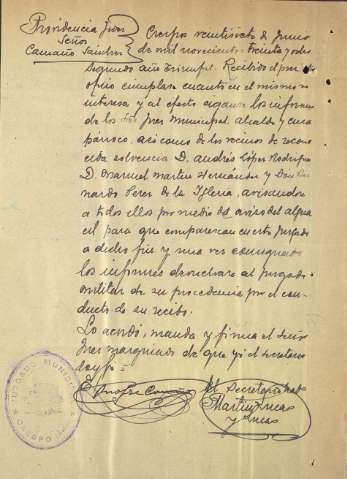 Providencia Juez
Señor
Camaño Sanchez
Crespos veintiseis de Junio
de mil novecientos treinta y ocho
Segundo año triunfal. Recibido el
oficio cumplase cuanto en el mismo se
interesa y al efecto oigase los informes
de los Sres Juez Municipal, alcalde y cura
párroco, asi como de los vecinos de recono
cida solvencia D. Andrés López Rodriguez
D. Manuel Martin Hernández y Don Ber
nardo Perez de la Iglesia, avisandose
a todos ellos por medio del aviso del algua
cil para que comparezcan en este Juzgado
a dicho fin y una vez consignados
los informes devuelvase al Juzgado
militar de su procedencia por el con
ducto de su recibo.
Lo acordó, manda y firma el Señor
Juez marginado de que yo el secretario
doy fe
El Secretario
Martin Lucas
y Lucas
JUZGADO MUNICIPAL